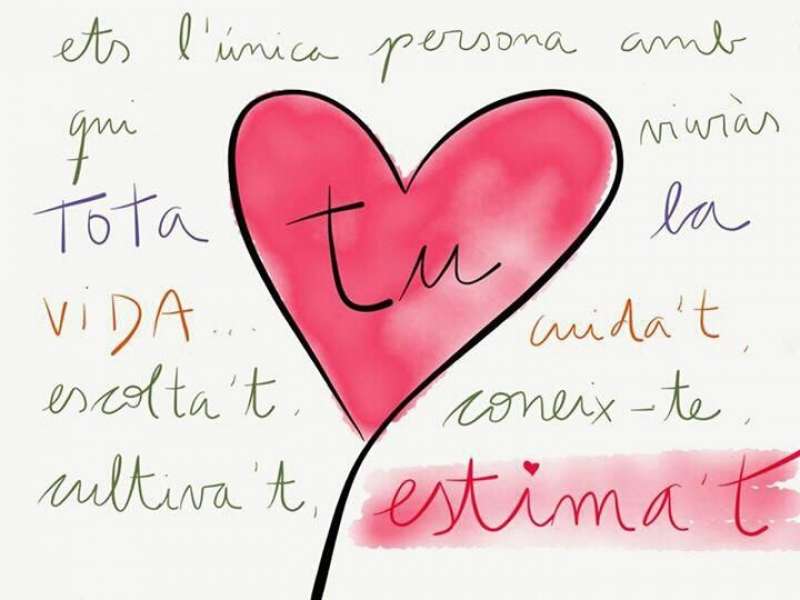 ets l'única persona amb
qui viuràs
TOTA tu la
ViDA... cuida't,
escolta't, coneix-te,
cultiva't, estima't